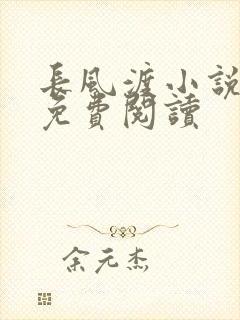 長風渡小說
免費閱讀
余元杰